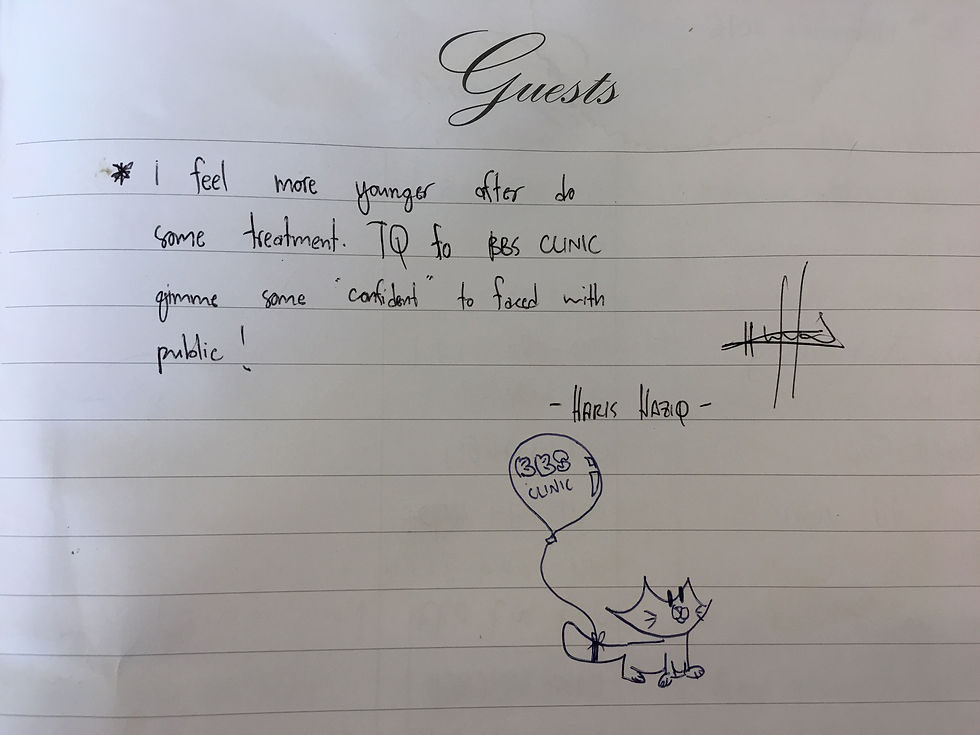 Guests
* i feel more younger after do
some treatment. TQ to BBS CLINIC
gimme some "confident" to faced with
public !
- HARIS HAZIQ -
BBS
CLINIC